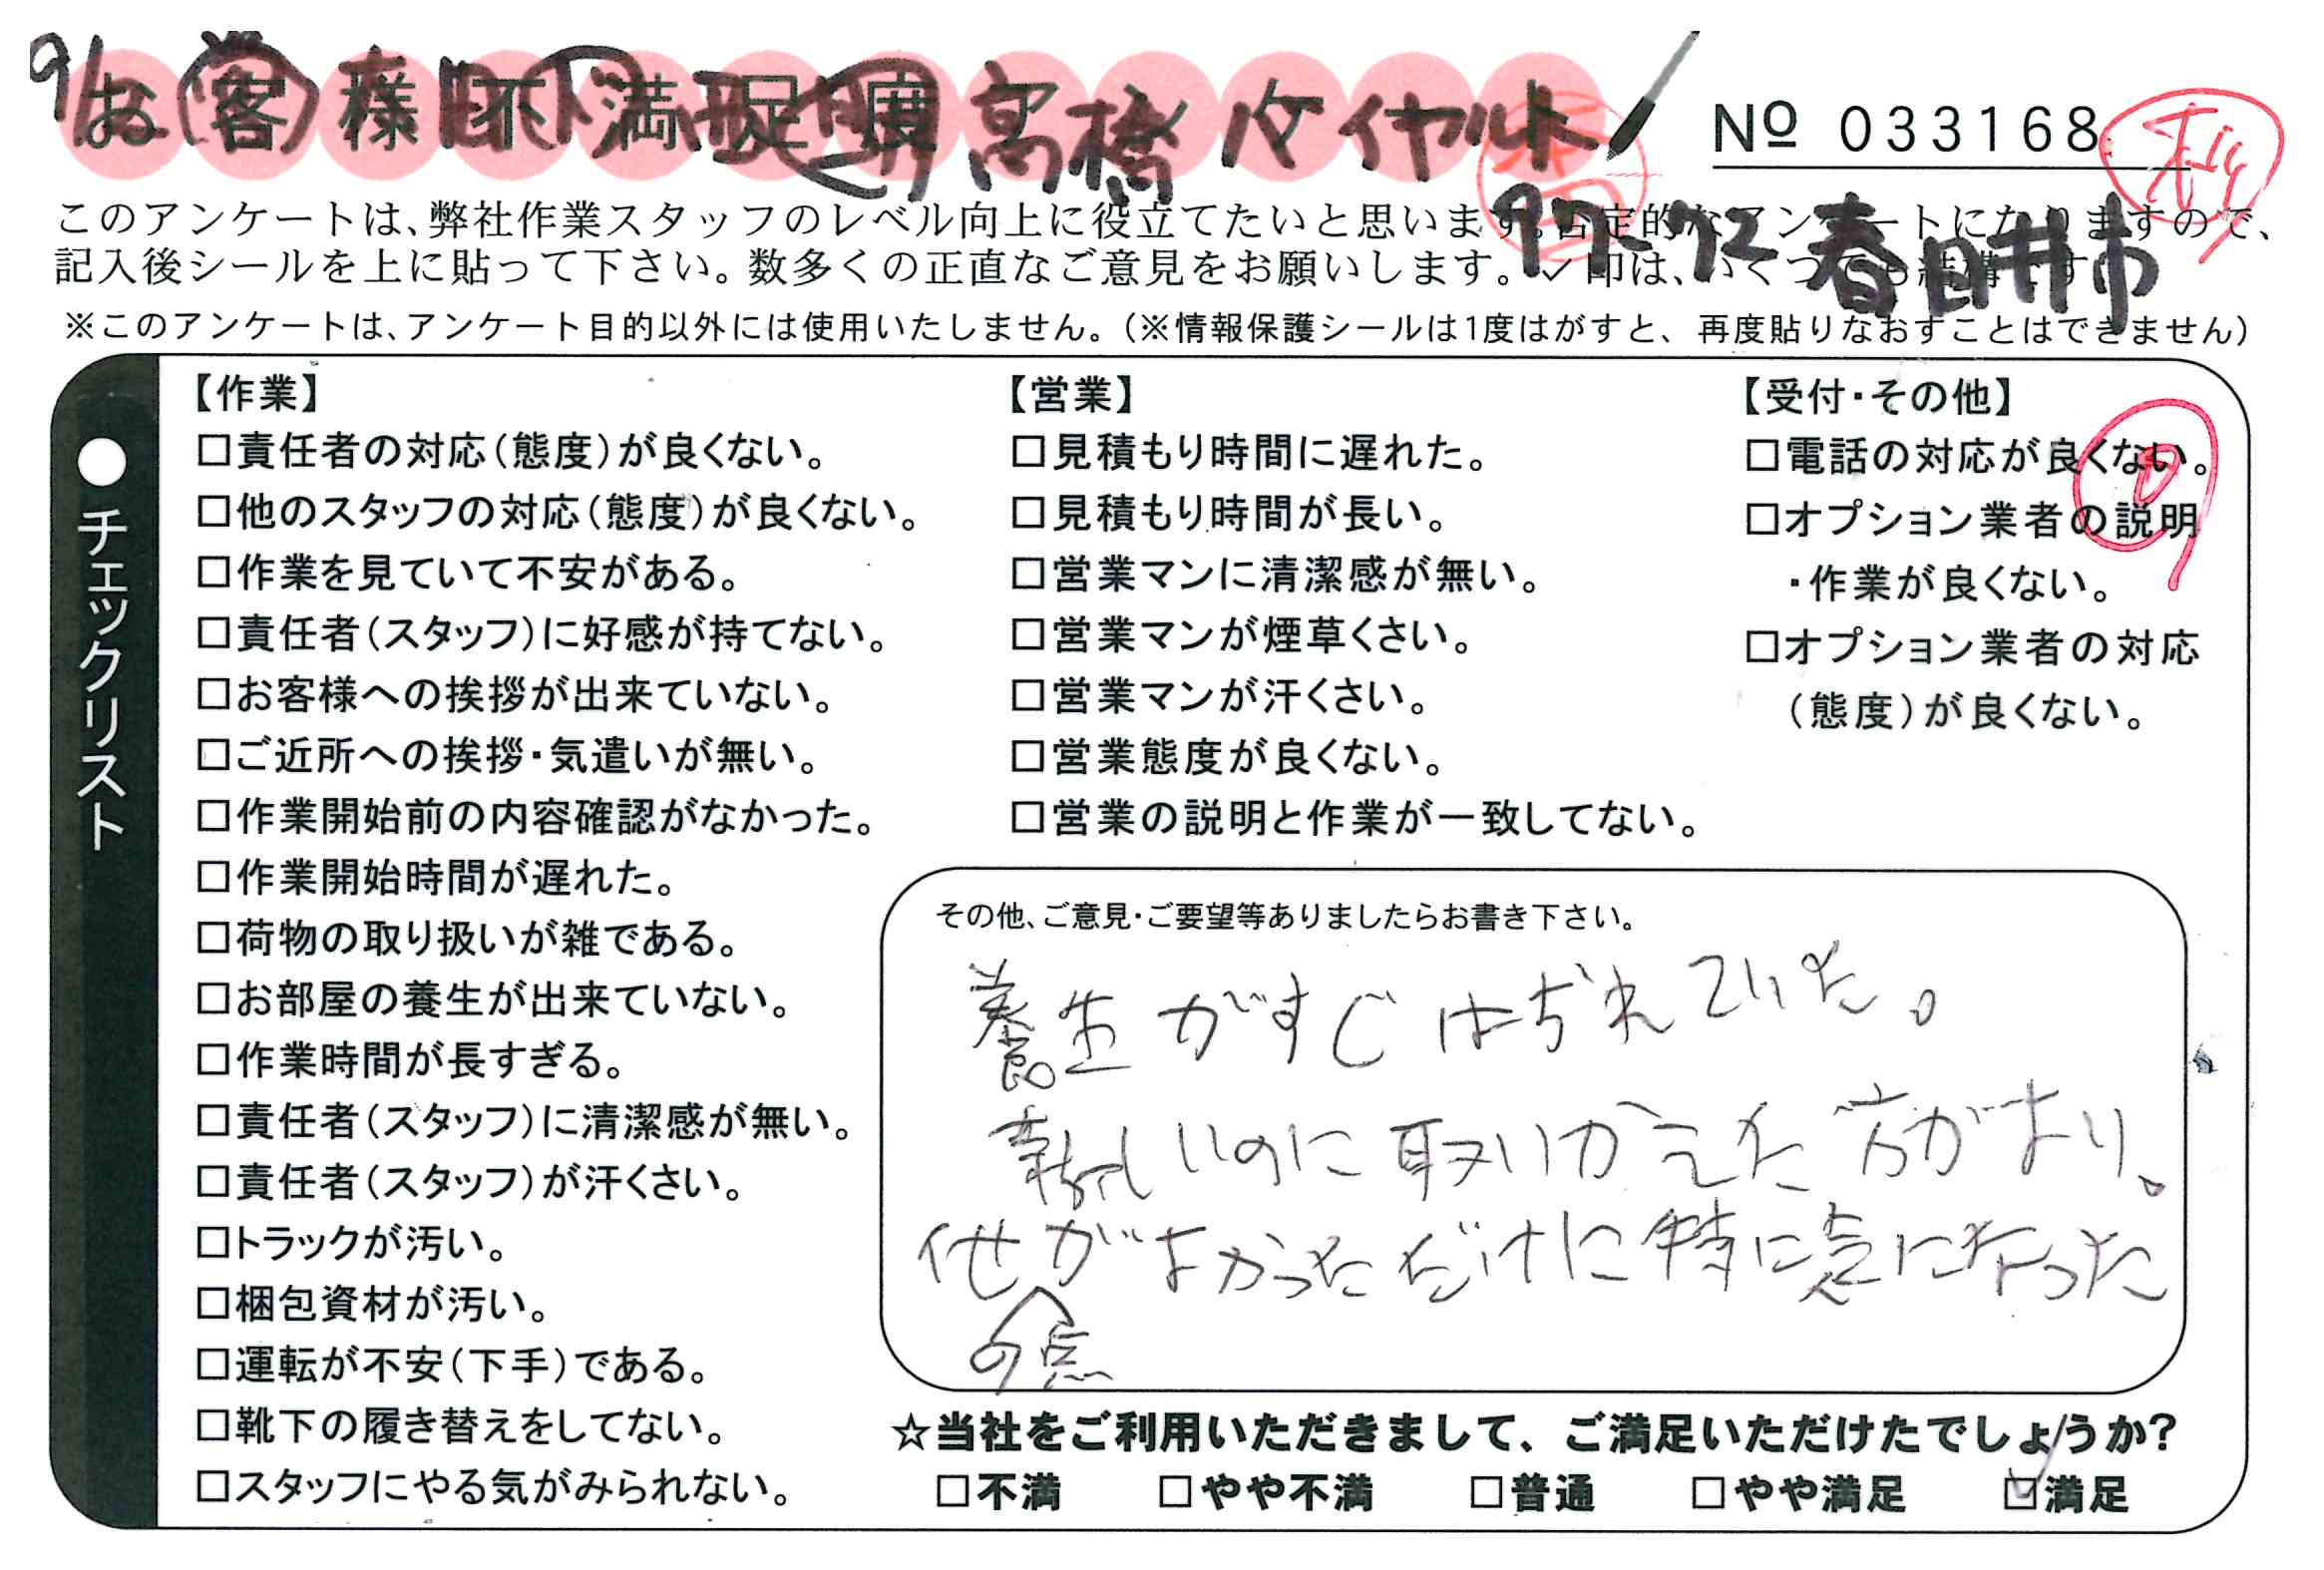 お客様不満足度アンケート
№ 033168
高橋
97-72 春日井市
このアンケートは、弊社作業スタッフのレベル向上に役立てたいと思います。否定的なアンケートになりますので、
記入後シールを上に貼って下さい。数多くの正直なご意見をお願いします。✓印は、いくつでも結構です。
※このアンケートは、アンケート目的以外には使用いたしません。(※情報保護シールは1度はがすと、再度貼りなおすことはできません)
●チェックリスト
【作業】
□責任者の対応(態度)が良くない。
□他のスタッフの対応(態度)が良くない。
□作業を見ていて不安がある。
□責任者(スタッフ)に好感が持てない。
□お客様への挨拶が出来ていない。
□ご近所への挨拶・気遣いが無い。
□作業開始前の内容確認がなかった。
□作業開始時間が遅れた。
□荷物の取り扱いが雑である。
□お部屋の養生が出来ていない。
□作業時間が長すぎる。
□責任者(スタッフ)に清潔感が無い。
□責任者(スタッフ)が汗くさい。
□トラックが汚い。
□梱包資材が汚い。
□運転が不安(下手)である。
□靴下の履き替えをしてない。
□スタッフにやる気がみられない。
【営業】
□見積もり時間に遅れた。
□見積もり時間が長い。
□営業マンに清潔感が無い。
□営業マンが煙草くさい。
□営業マンが汗くさい。
□営業態度が良くない。
□営業の説明と作業が一致してない。
【受付・その他】
□電話の対応が良くない。
□オプション業者の説明
・作業が良くない。
□オプション業者の対応
(態度)が良くない。
その他、ご意見・ご要望等ありましたらお書き下さい。
養生がすぐはずれていた。
新しいのに取りかえた方がよい。
他の点がよかっただけに特に気になった
☆当社をご利用いただきまして、ご満足いただけたでしょうか?
□不満 □やや不満 □普通 □やや満足 ☑満足